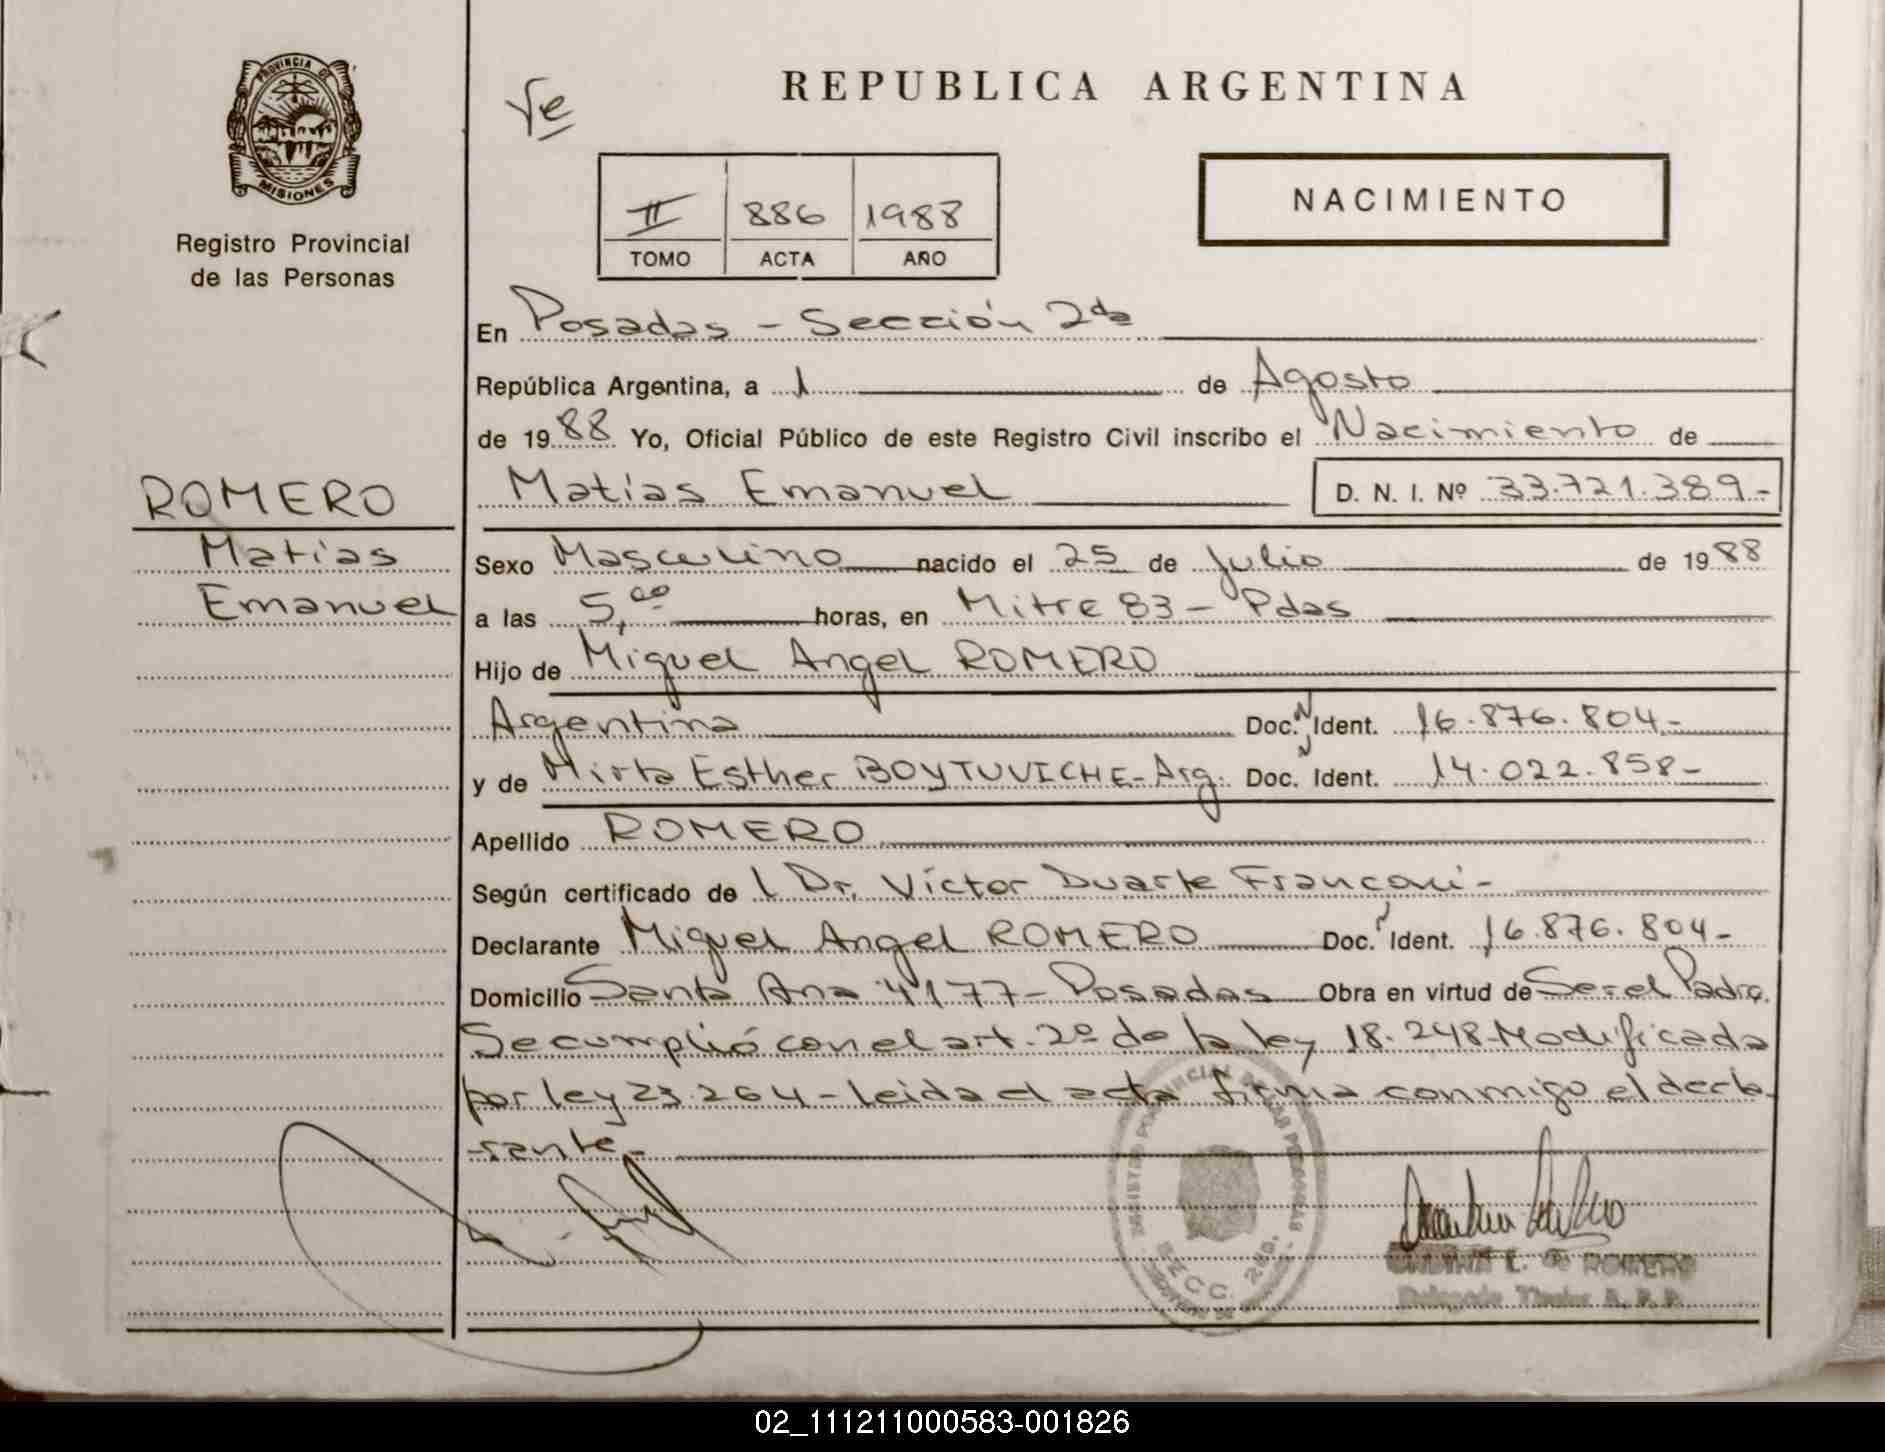 PROVINCIA DE
MISIONES
Registro Provincial
de las Personas
ROMERO
Matías
Emanuel
REPUBLICA ARGENTINA
II 886 1988
TOMO ACTA AÑO
NACIMIENTO
En Posadas - Sección 2da
República Argentina, a 1 de Agosto
de 1988 Yo, Oficial Público de este Registro Civil inscribo el Nacimiento de
Matías Emanuel D. N. I. Nº 33.721.389-
Sexo Masculino nacido el 25 de Julio de 1988
a las 5,00 horas, en Mitre 83 - Pdas
Hijo de Miguel Angel ROMERO
Argentina Doc. Ident. 16.876.804-
y de Mirta Esther BOYTUVICHE - Arg. Doc. Ident. 14.022.858-
Apellido ROMERO
Según certificado de l Dr. Víctor Duarte
Declarante Miguel Angel ROMERO Doc. Ident. 16.876.804-
Domicilio Santa Ana 4177 - Posadas Obra en virtud de Ser el Padre.
Se cumplió con el art. 2º de la ley 18.248 Modificada
por ley 23.264 - Leida el acta firma conmigo el decla-
rante.
L. de ROMERO
02_111211000583-001826